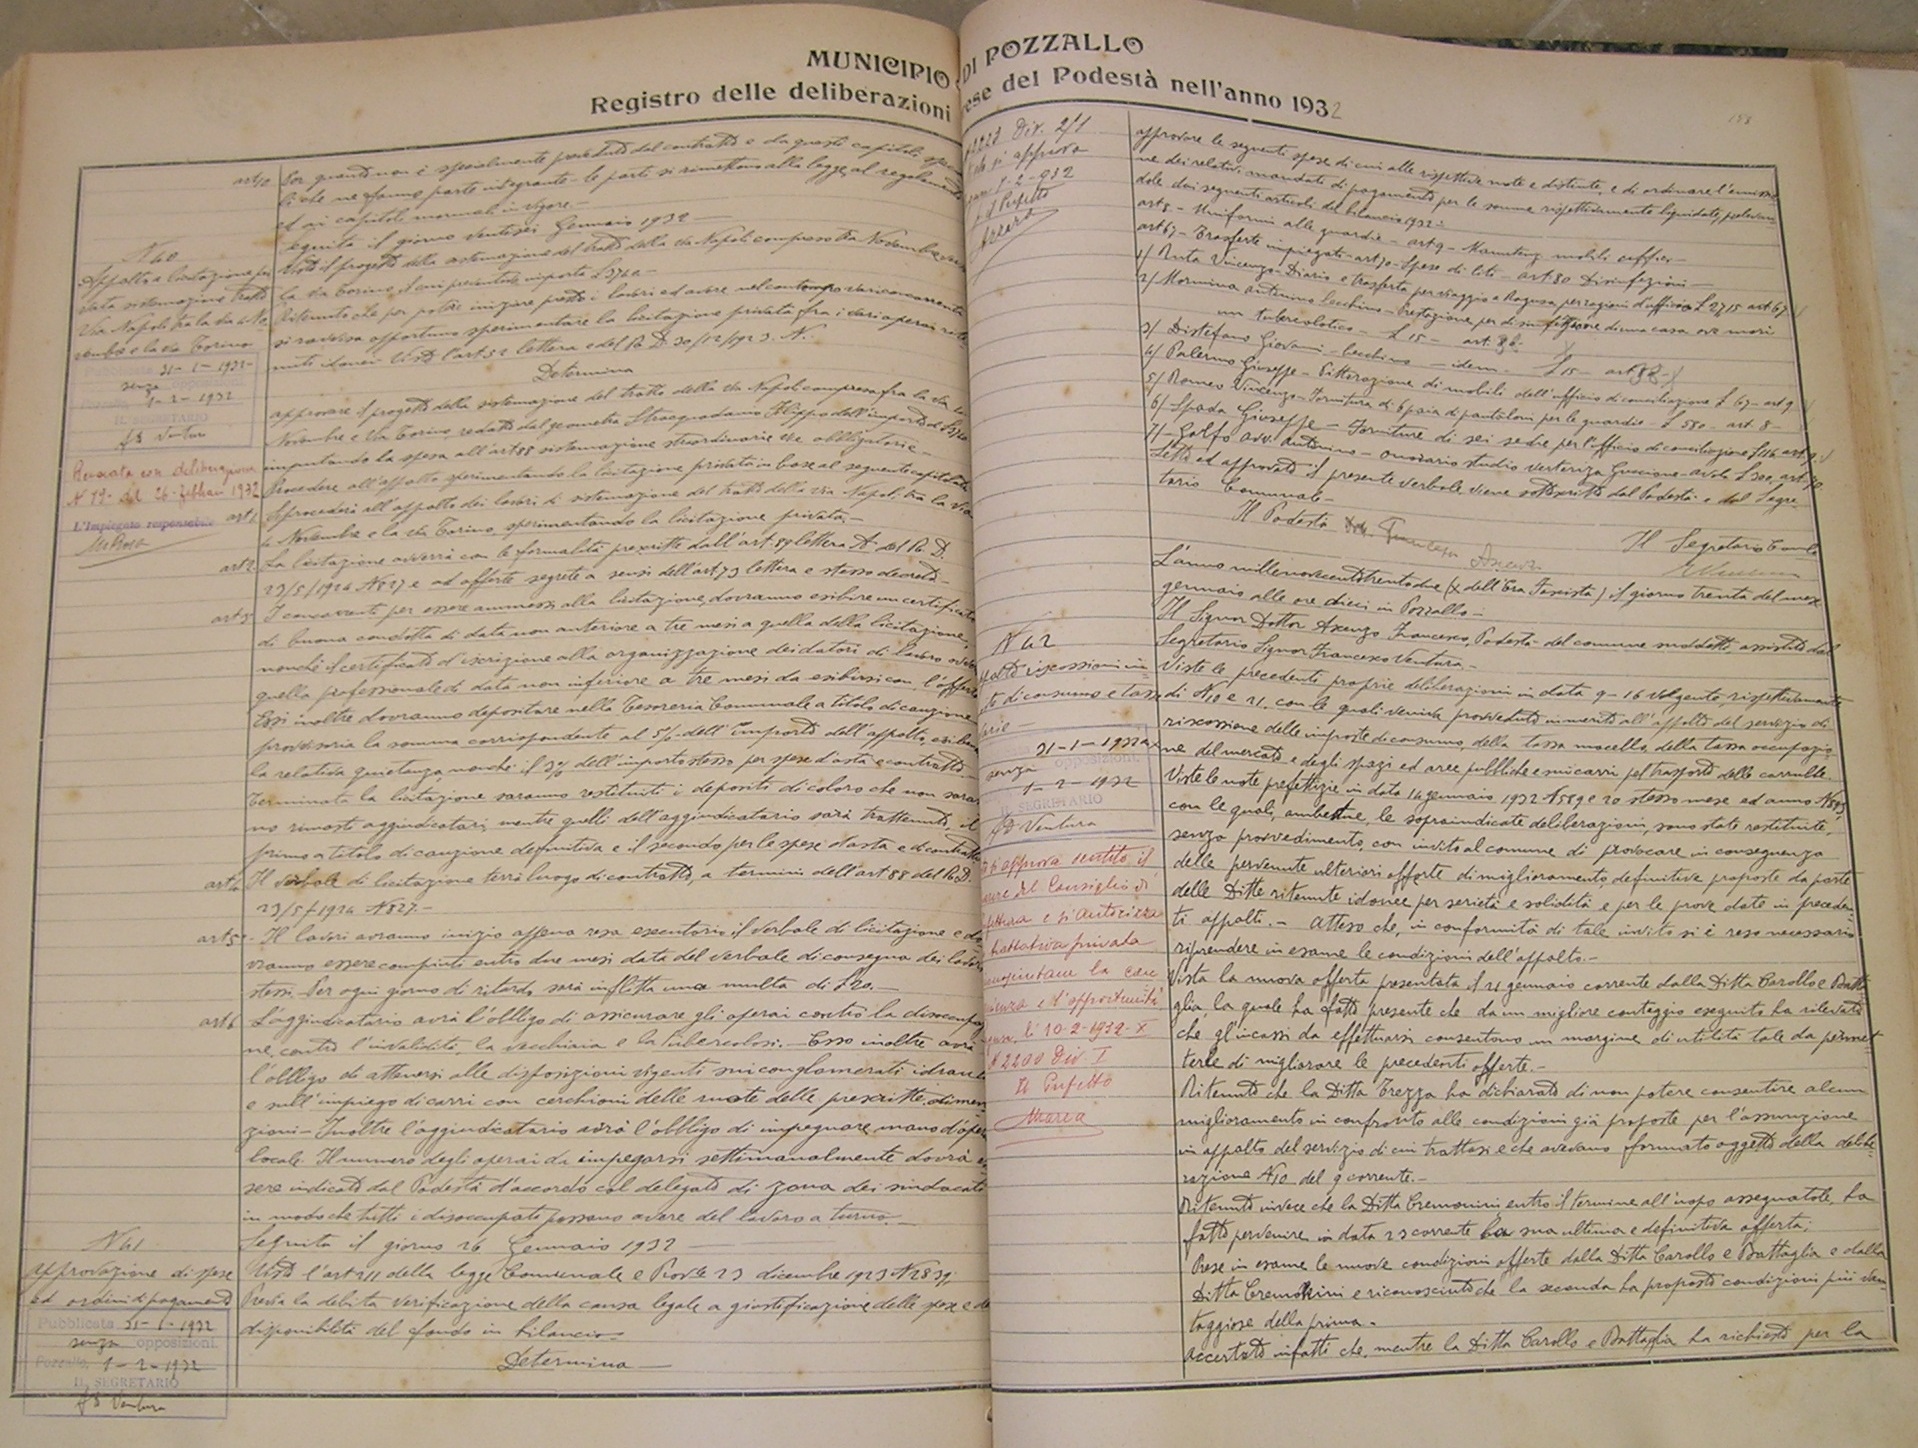 MUNICIPIO DI POZZALLO
Registro delle deliberazioni prese del Podestà nell'anno 1932
art 10 Per quanto non è specialmente preveduto dal contratto e da questi capitoli
li che ne fanno parte integrante le parti si rimettono alla legge, al regolamento
ed ai capitoli normali in vigore.-
Seguita il giorno ventisei Gennaio 1932
N 40
Appalto a licitazione pri
vata sistemazione tratto
Via Napoli tra la via 4 No
vembre e la via Torino
31-1-1932-
senza opposi
1-2-1932
IL SEGRETARIO
f.to Ventura
Revocata con deliberazione
N 79 del 26 febbraio 1932
L'Impiegato responsabile
Visto il progetto della sistemazione del tratto della via Napoli compreso tra Novembre
la via Torino, il cui preventivo importa L 3740-
Ritenuto che per potere iniziare presto i lavori ed avere nel contempo vari concorrenti
si ravvisa opportuno sperimentare la licitazione privata fra i vari operai
muti idonei Visto l'art 52 lettera e del R. D 30/12/1923 N.
Determina
approvare il progetto della sistemazione del tratto della via Napoli compreso fra la via
Novembre e Via Torino, redatto dal geometra Straquadanio Filippo dell'importo di L 3740
imputando la spesa all'art 88 sistemazione straordinarie vie obbligatorie-
Procedere all'appalto sperimentando la licitazione privata in base al seguente capitolato
art 1 Si procederà all'appalto dei lavori di sistemazione del tratto della via Napoli, tra la via
4 Novembre e la via Torino, sperimentando la licitazione privata.-
art 2 La licitazione avverrà con le formalità prescritte dall'art 89 lettera A del R. D.
23/5/1924 N 827 e ad offerte segrete a sensi dell'art 73 lettera e stesso decreto-
art 3 I concorrenti per essere ammessi alla licitazione, dovranno esibire un certificato
di buona condotta di data non anteriore a tre mesi a quella della licitazione,
nonché il certificato d'iscrizione alla organizzazione dei datori di lavoro
quella professionale di data non inferiore a tre mesi da esibirsi con l'offerta
Essi inoltre dovranno depositare nella Tesoreria Comunale a titolo di cauzione
provvisoria la somma corrispondente al 5% dell'importo dell'appalto,
la relativa quietanza, nonché il 3% dell'importo stesso per spese d'asta e contratto-
Terminata la licitazione saranno restituiti i depositi di coloro che non saran
no rimasti aggiudicatari, mentre quelli dell'aggiudicatario sarà trattenuto, il
primo a titolo di cauzione definitiva e il secondo per le spese d'asta e di contratto
art 4 Il verbale di licitazione terrà luogo di contratto, a termini dell'art 88 del R.D.
23/5/1924 N 827.-
art 5 - Il lavori avranno inizio appena resa esecutorio il verbale di licitazione e do
vranno essere compiuti entro due mesi data del verbale di consegna dei lavori
stessi- Per ogni giorno di ritardo sarà inflitta una multa di L 20.-
art 6 L'aggiudicatario avrà l'obbligo di assicurare gli operai contro la disoccupazio
ne, contro l'invalidità, la vecchiaia e la tubercolosi.- Esso inoltre avrà
l'obbligo di attenersi alle disposizioni vigenti sui conglomerati idrau
e sull'impiego di carri con cerchioni delle ruote delle prescritte dimen
zioni- Inoltre l'aggiudicatario avrà l'obbligo di impegnare mano d'opera
locale. Il numero degli operai da impegarsi settimanalmente dovrà es
sere indicato dal Podestà d'accordo col delegato di zona dei sindacati
in modo che tutti i disoccupati possano avere del lavoro a turno.-
Seguita il giorno 26 Gennaio 1932
N 41
Approvazione di spese
ed ordini di pagamento
Pubblicata 31-1-1932
senza opposizioni.
Pozzallo, 1-2-1932
IL SEGRETARIO
f.to Ventura
Visto l'art 211 della legge Comunale e Prov.le 23 dicembre 1923 N 2839
Previa la debita verificazione della causa legale a giustificazione delle spese e della
disponibilità del fondo in bilancio-
Determina
2223 Div. 2/1
si approva
1-2-932
Il Prefetto
approvare le seguenti spese di cui alle rispettive note e distinte, e di ordinare l'emissio
ne dei relativi mandati di pagamento per le somme rispettivamente liquidate, prelevan
dole dai seguenti articoli del bilancio 1932:
art 8- Uniformi alle guardie- art 9- Manuteng mobili uffici-
art 67- Trasferte impiegati- art 70- Spese di liti- art 80 Disinfezioni-
1/ Ruta Vincenzo- Diario e trasferta per viaggio a Ragusa per ragioni d'ufficio L 27,15 art 67
2/ Mormina Antonino becchino- Prestazione per disinfezione di una casa ove morì
un tubercolotico- L 15- art. 80
3/ Distefano Giovanni- becchino- idem- L 15- art 80
4/ Palermo Giuseppe- Pitturazione di mobili dell'ufficio di conciliazione L 67- art 9
5/ Romeo Vincenzo- Fornitura di 6 paia di pantaloni per le guardie- L 550- art. 8-
6/ Spada Giuseppe- Forniture di sei sedie per l'ufficio di conciliazione L 116 art 9
7/- Galfo avv. Antonino- onorario studio vertenza Guccione- avola L 200, art 70
Letto ed approvato il presente verbale viene sottoscritto dal Podestà e dal Segre
tario Comunale-
Il Podestà
Il Segretario Com.le
L'anno millenovecentotrentadue (X dell'Era Fascista) il giorno trenta del mese
gennaio alle ore dieci in Pozzallo-
Il Signor Dottor Axenzo Francesco, Podestà del comune suddetto assistito dal
Segretario Signor Francesco Ventura.-
N 42
riscossioni im
di consumo e tasse
31-1-1932
senza opposizioni.
1-2-1932
IL SEGRETARIO
f.to Ventura
Si approva sentito il
parere del Consiglio di
Prefettura e si autorizza
la trattativa privata
la con
venienza e l'opportunità
li 10-2-1932-X
N 2200 Div I
Il Prefetto
Marca
Viste le precedente proprie deliberazioni in data 9-16 volgente, rispettivamente
di N 10 e 21, con le quali veniva provveduto in merito all'appalto del servizio di
riscossione delle imposte di consumo, della tassa macello, della tassa occupazio
ne del mercato e degli spazi ed aree pubbliche e sui carri pel trasporto delle carni
Viste le note prefettizie in data 14 gennaio 1932 N 589 e 20 stesso mese ed anno N 895
con le quali, ambedue, le sopraindicate deliberazioni, sono state restituite,
senza provvedimento, con invito al comune di provocare in conseguenza
delle pervenute ulteriori offerte di miglioramento, definitive proposte da parte
delle Ditte ritenute idonee per serietà e solidità e per le prove date in preceden
ti appalti.- Atteso che, in conformità di tale invito si è reso necessario
riprendere in esame le condizioni dell'appalto.-
Vista la nuova offerta presentata il 21 gennaio corrente dalla Ditta Carollo e Batta
glia, la quale ha fatto presente che da un migliore conteggio eseguito ha rilevato
che gl'incassi da effettuarsi consentono un margine di utilità tale da permet
terle di migliorare le precedenti offerte.-
Ritenuto che la Ditta Trezza ha dichiarato di non potere consentire alcun
miglioramento in confronto alle condizioni già proposte per l'assunzione
in appalto del servizio di cui trattasi e che avevano formato oggetto della delibe
razione N 10 del 9 corrente.-
Ritenuto invece che la Ditta Cremonini entro il termine all'uopo assegnatole, ha
fatto pervenire in data 23 corrente la sua ultima e definitiva offerta;
Prese in esame le nuove condizioni offerte dalla Ditta Carollo e Battaglia e dalla
Ditta Cremonini e riconosciuto che la seconda ha proposto condizioni più van
taggiose della prima.-
Accertato infatti che, mentre la Ditta Carollo e Battaglia ha richiesto per la